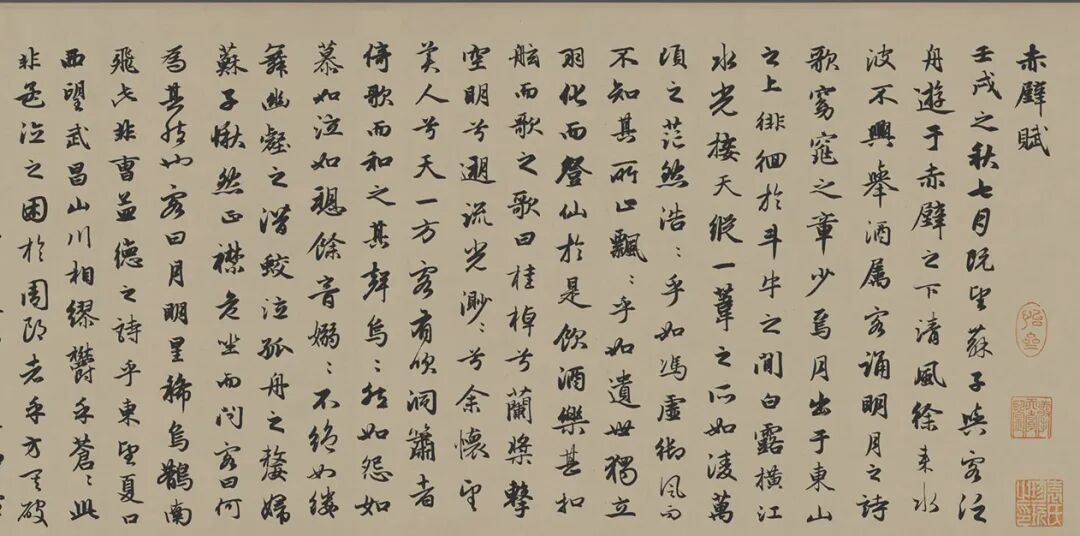 赤壁賦
壬戌之秋七月既望蘇子與客泛
舟遊于赤壁之下清風徐來水
波不興舉酒屬客誦明月之詩
歌窈窕之章少焉月出于東山
之上徘徊於斗牛之間白露橫江
水光接天縱一葦之所如淩萬
頃之茫然浩〻乎如馮虛御風而
不知其所止飄〻乎如遺世獨立
羽化而登仙於是飲酒樂甚扣
舷而歌之歌曰桂棹兮蘭槳擊
空明兮遡流光渺〻兮余懷望
美人兮天一方客有吹洞簫者
倚歌而和之其聲烏〻然如怨如
慕如泣如訴餘音嫋〻不絕如縷
舞幽壑之潛蛟泣孤舟之嫠婦
蘇子愀然正襟危坐而問客曰何
為其然也客曰月明星稀烏鵲南
飛此非曹孟德之詩乎東望夏口
西望武昌山川相繆鬱乎蒼〻此
非孟德之困於周郎者乎方其破